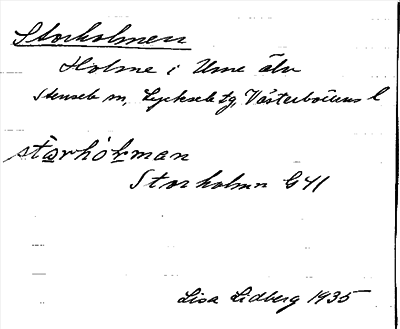 Storholmen
Holme i Ume älv
Stensele sn, Lycksele lg, Västerbottens l
stɷrhoḷman
Storholmn G41
Lisa Lidberg 1935